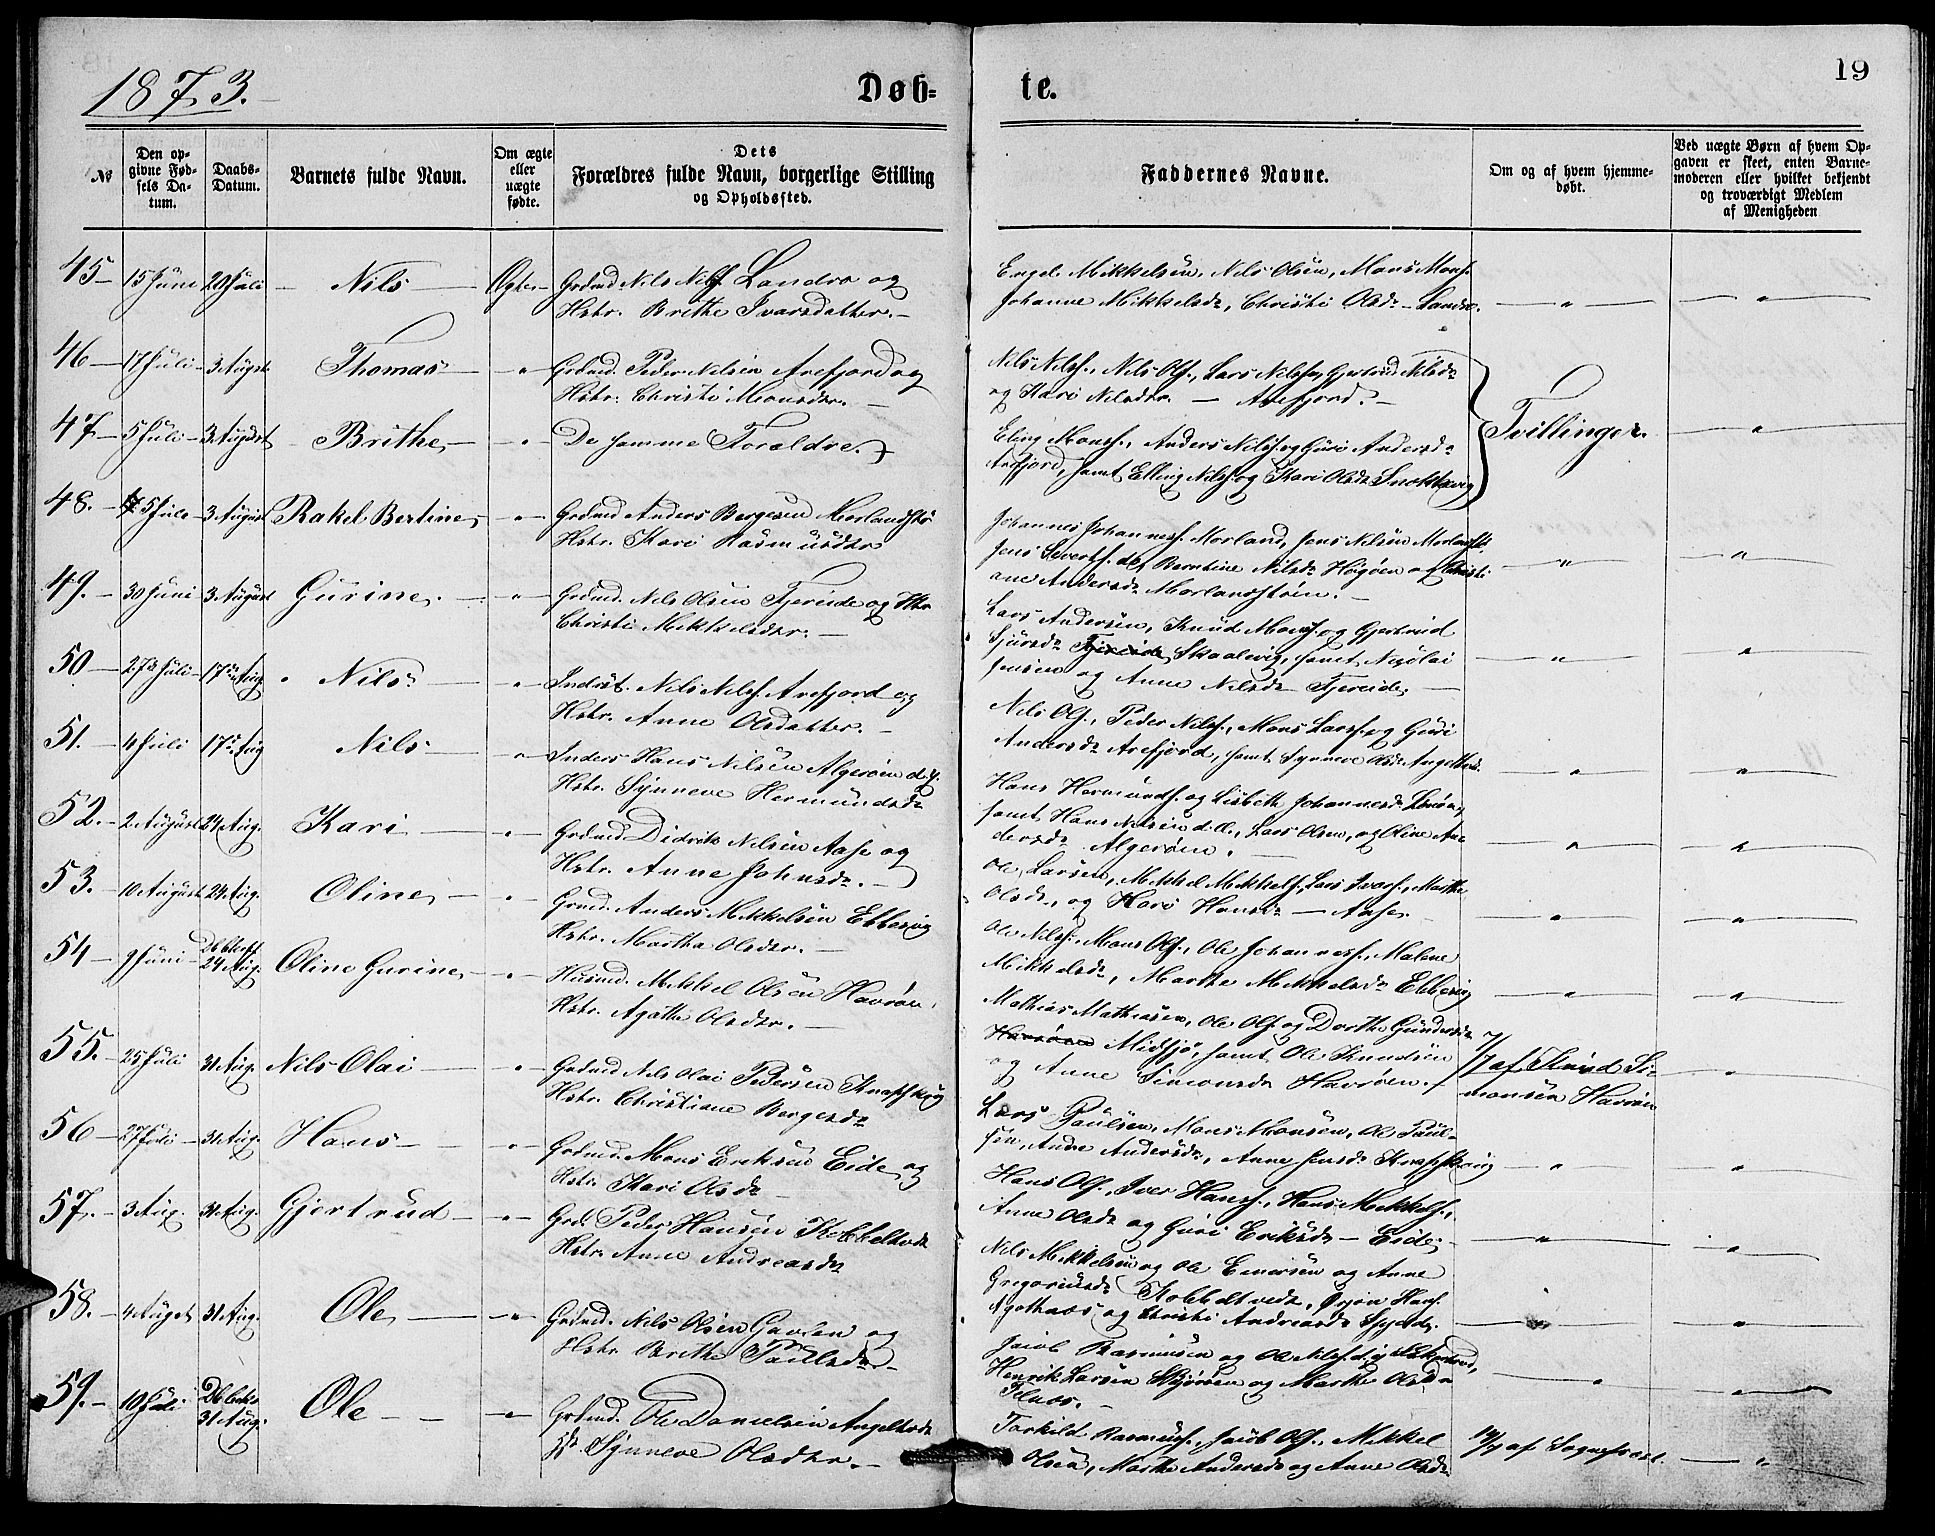 1873.
Døb-
te.
19
№
Den op-
givne Fød-
sels Da-
tum.
Daabs-
Datum.
Barnets fulde Navn.
Om ægte
eller
uægte
fødte.
Dets
Forældres fulde Navn, borgerlige Stilling
og Opholdssted.
Faddernes Navne.
Om og af hvem hjemme-
døbt.
Ved uægte Børn af hvem Op-
gaven er skeet, enten Barne-
moderen eller hvilket bekjendt
og troværdigt Medlem
af Menigheden
45 15 Juni 20 Juli Nils Ægte
Grdmd Nils Nilss. Landro og
Hstr. Brithe Ivarsdatter.
Engel. Mikkelsen, Nils Olsen, Mons Mons.
Johanne Mikkelsdr, Christi Olsdr - Landro.
46 17 Juli 3 August Thomas "
Grdmd. Peder Nilsen Arefjord og
Hstr: Christi Monsdtr.
Nils Nilss., Nils Ols., Lars Nilss., Gjertrud Nilsdr
og Kari Nilsdtr. - Arefjord.
Tvillinger.
47 5 Juli 3 August Brithe "
De samme Forældre.
Elling Monss., Anders Nilss. og Guri Andersdr
Arefjord, samt Elling Nilss. og Kari Olsdr Snekkevig
48. 5 Juli 3 August Rakel Bertine "
Grdmd Anders Bergesen Morlandstø
Hstr. Kari Rasmusdtr
Johannes Johanness. Morland, Jens Nilsen Morlandstø
Jens Sivertss. Berntine Nilsdr Høgøen og Christi-
ane Andersdr Morlandstøen.
49. 30 Juni 3 August Gurine "
Grdmd. Nils Olsen Tjereide og Hstr
Christi Mikkelsdtr.
Lars Andersen, Knud Monss. og Gjertrud
Sjursdr Tjereide, Skaalevig, samt Nicolai
Jensen og Anne Nilsdr Tjereide.
50 27 Juli 17 Aug Nils "
Inderst. Nils Nilss. Arefjord og
Hstr. Anne Olsdatter.
Nils Ols., Peder Nilss., Mons Larss. og Guri
Andersdr Arefjord, samt Synneve Olsdr Angeltvedt.
51. 4 Juli 17 Aug Nils "
Inders Hans Nilsen Algerøen d. y.
Hstr. Synneve Hermundsdr
Hans Hermunds. og Lisbeth Johannesdr Lenøen,
samt Hans Nilsen d. æ., Lars Olsen, og Oline An-
dersdr Algerøen.
52. 2 August 24 Aug. Kari "
Grdmd. Didrik Nilsen Aase og
Hstr. Anne Johnsdr.
Ole Larsen, Mikkel Mikkels., Lars Ivars., Marthe
Olsdr, og Kari Hansdr - Aase.
53. 10 August 24 Aug. Oline "
Grmd. Anders Mikkelsen Ebbesvig
Hstr. Martha Olsdtr.
Ole Nilss., Mons Ols., Ole Johanness., Malene
Mikkelsdr, Marthe Mikkelsdr Ebbesvig
54 7 Juni 24 Aug. Oline Gurine "
Husmd. Mikkel Olsen Havrøen,
Hstr. Agathe Olsdtr.
Mathias Mathiasen, Ole Ols. og Dorthe Gundersdr
Havrøen Midtsjø, samt Ole Knudsen
og Anne Simonsdr Havrøen.
7/7 af Knud Si-
monsen Havrøen
55. 25 Juli 31 Aug. Nils Olai "
Grdmd Nils Olai Pedersen Knapskog
Hstr. Christiane Bergesdr
Lars Paulsen, Mons Monsen, Ole Paul-
sen, Anne Andersdr, Anne Jensdr Knapskog
56 27 Juli 31 Aug. Hans "
Grdmd. Mons Eriksen Eide og
Hstr. Kari Olsdr
Hans Ols., Iver Hanss., Hans Mikkels.,
Anne Olsdr og Guri Eriksdr - Eide
57. 3 Aug. 31 Aug. Gjertrud "
Grd. Peder Hansen Kobbeltvedt
Hstr. Anne Andreasdr
Nils Mikkelsen og Ole Einersen og Anne
Gregoriusdr Kobbeltvedt, Ørjan Hans.
Agotnæs og Christi Andreasdr Spjeld.
58. 4 August 31 Aug. Ole "
Grdmd. Nils Olsen Gavlen og
Hstr Brithe Paulsdr
Jacob Rasmussen og Ole Nilss. d. y
Henrik Larsen Skjørsen og Marthe Olsdr
59. 10 Juli 31 Aug. Ole "
Grdmd. Ole Danielsen Angeltvedt
Synneve Olsdtr.
Torkild Rasmuss., Jacob Ols., Mikkel
Olsen, Marthe Andersdr og Anne Olsdr
af Sognepræst.